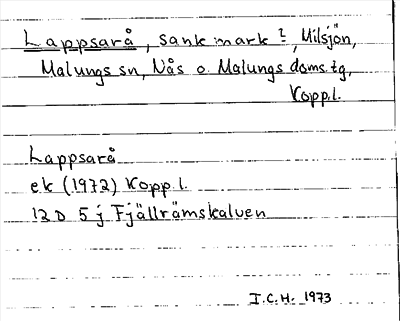 Lappsarå, sank mark ?, Milsjön,
Malungs sn, Nås o. Malungs doms.tg,
Kopp.l.
Lappsarå
ek (1972) Kopp.l.
12 D 5 j Fjällrämskalven
I.C.H. 1973